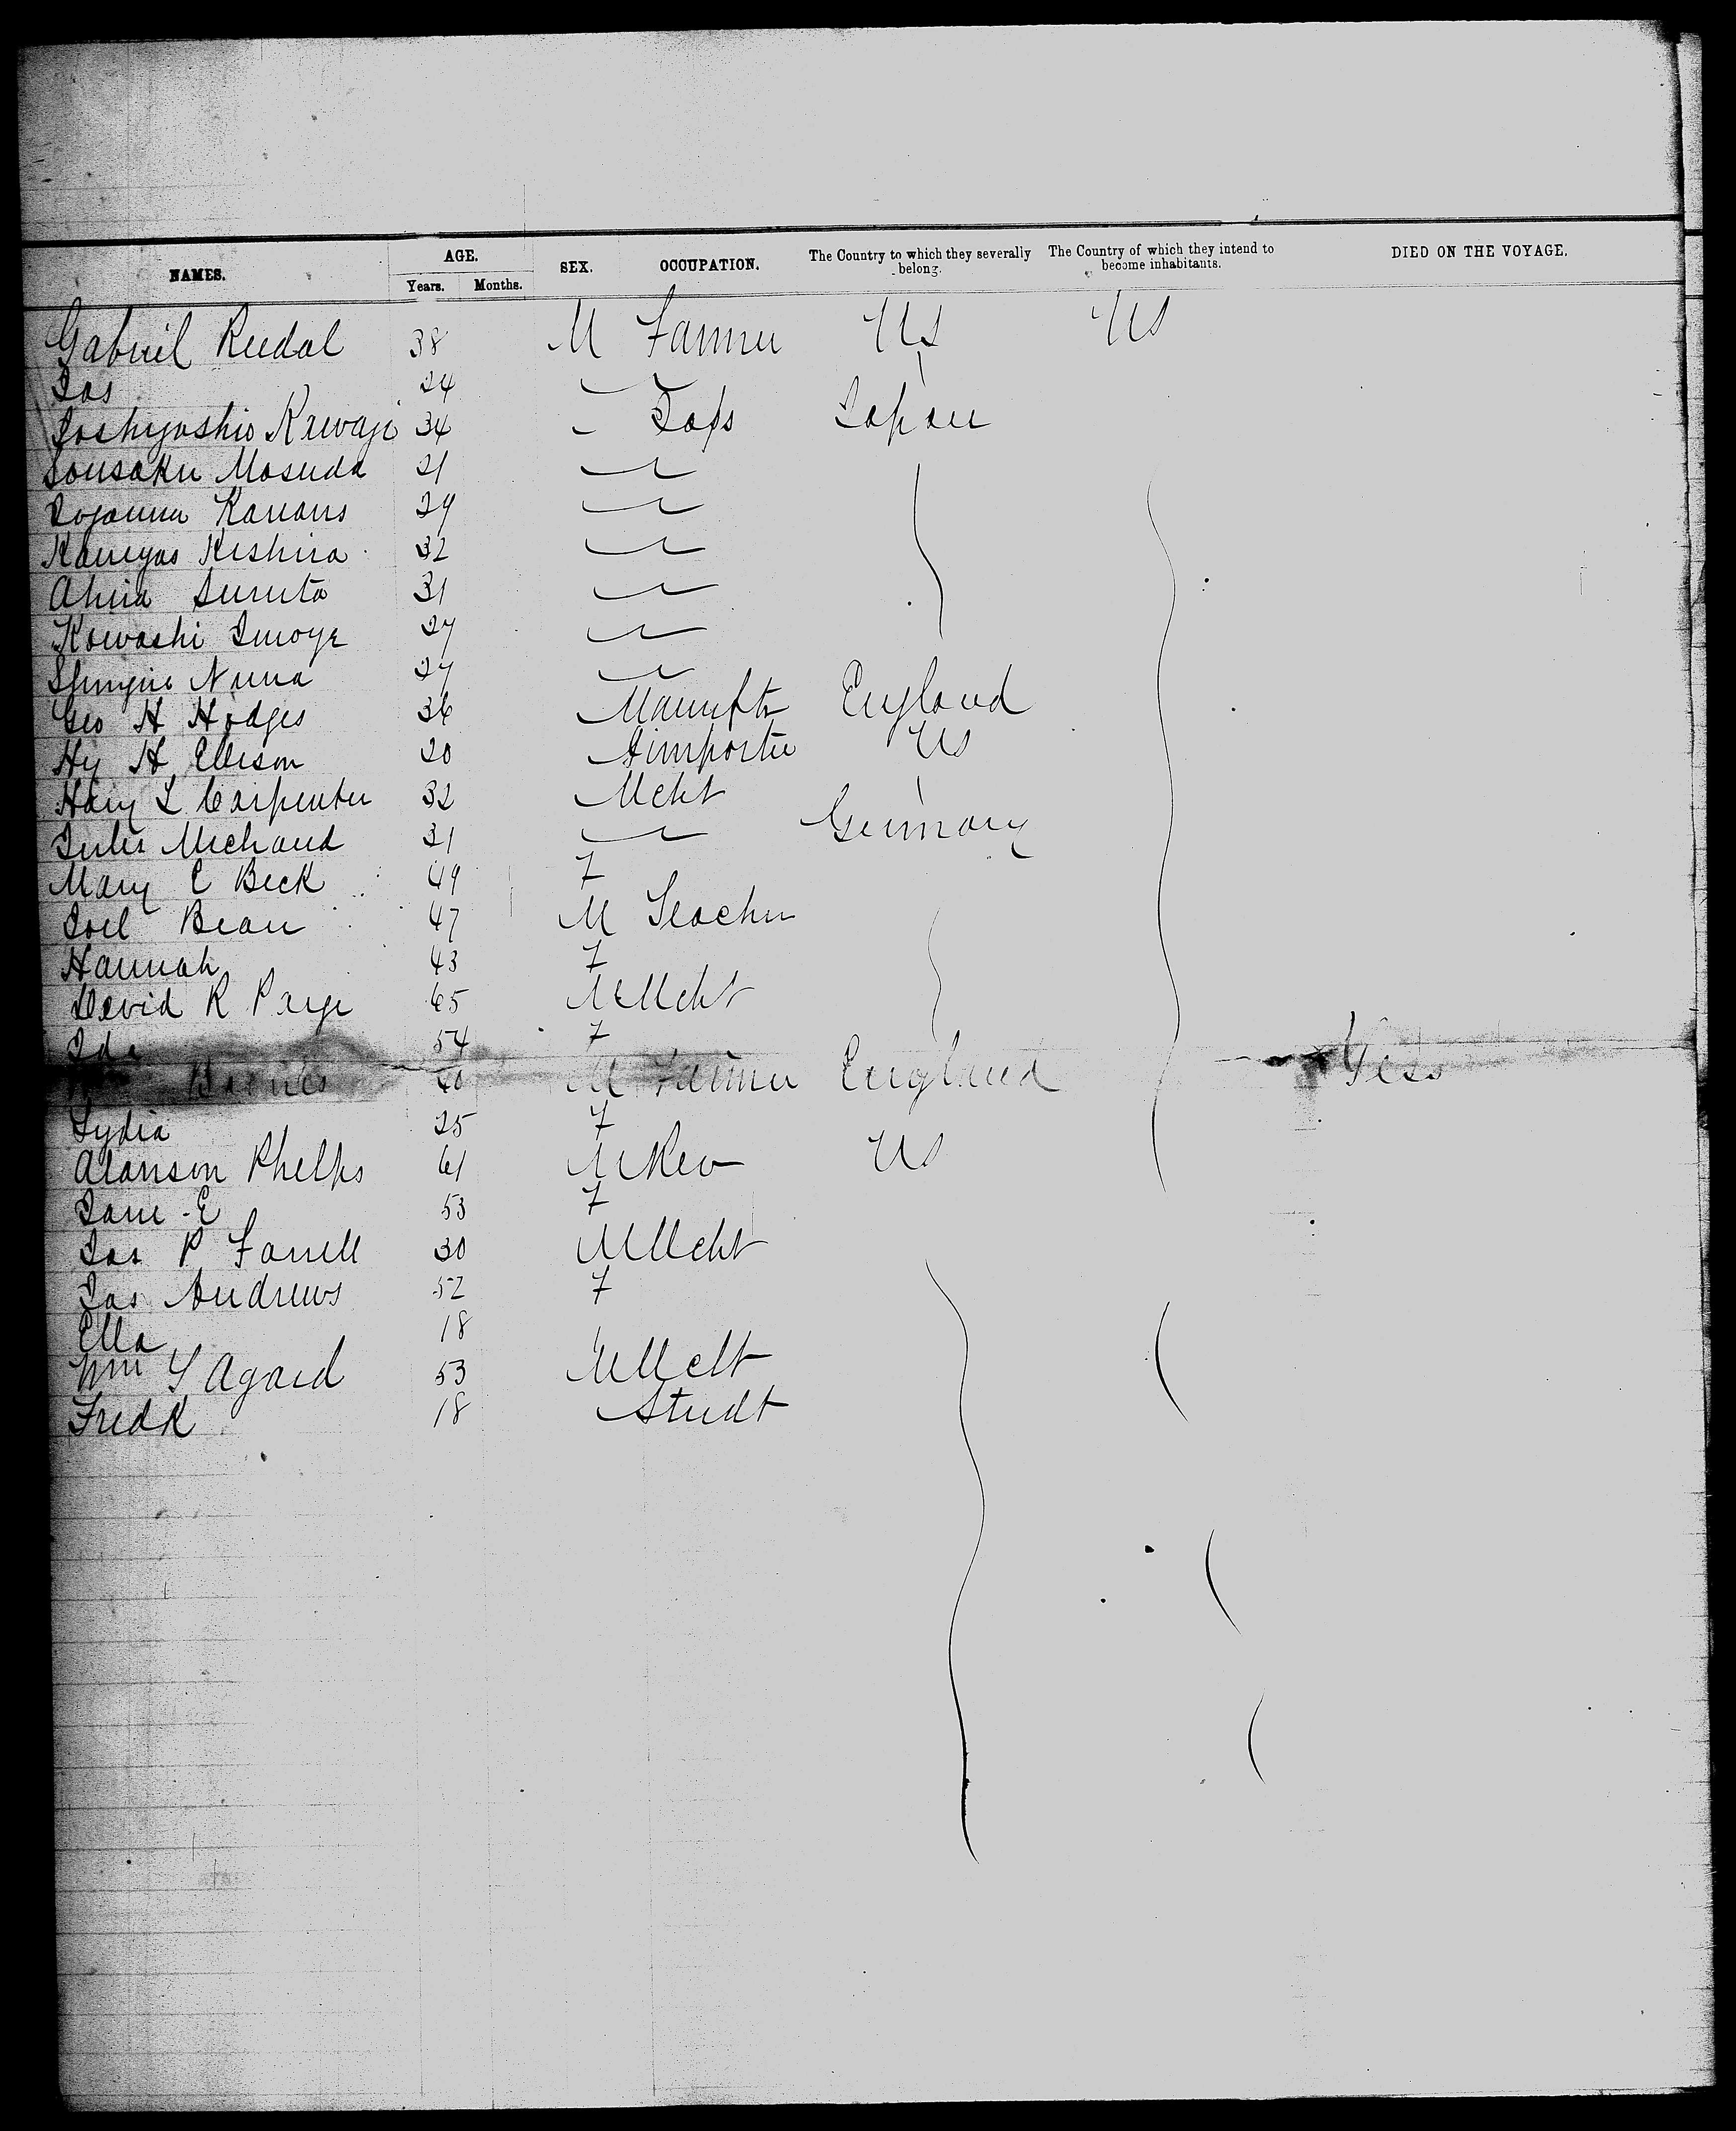 NAMES. AGE. SEX. OCCUPATION. The Country to which they severally belong. The Country of which they intend to become inhabitants. DIED ON THE VOYAGE.
Years. Months.
Gabriel Reedal 38 M Farmer US US
Jas 24
Joshiyoshio Kawaji 34 Japs Japan
Sonsaku Masuda 21
29
Kishira 32
31
Kowashi Inoye 27
27
Geo H Hodges 36 Manuftr England
Hy H Ellison 20 Importer US
Harry L Carpenter 32 Mcht
Jules Michaud 31 Germany
Mary E Beck 49 F
Joel Bean 47 M Teacher
Hannah 43 F
David R Paige 65 M Mcht
Ida 54 F
Barnes 40 M Farmer England
Lydia 25 F
Alanson Phelps 61 M Rev US
Jane E 53 F
Jas P Farrell 30 M Mcht
Jas Andrews 52 F
Ella 18
Wm Y Agard 53 M Mcht
Fredk 18 Studt